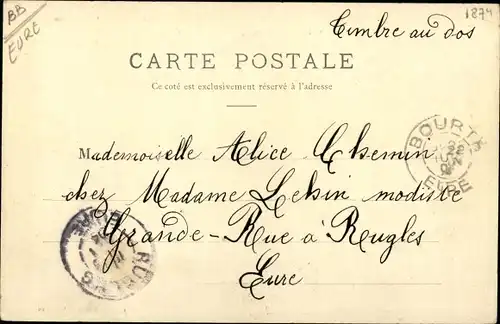 BB
EURE
1874
Timbre au dos
CARTE POSTALE
Ce coté est exclusivement réservé à l'adresse
Mademoiselle Alice Chemin
chez Madame Lebin modiste
Grande-Rue à Rugles
Eure
BOURTH
EURE
RUGLES